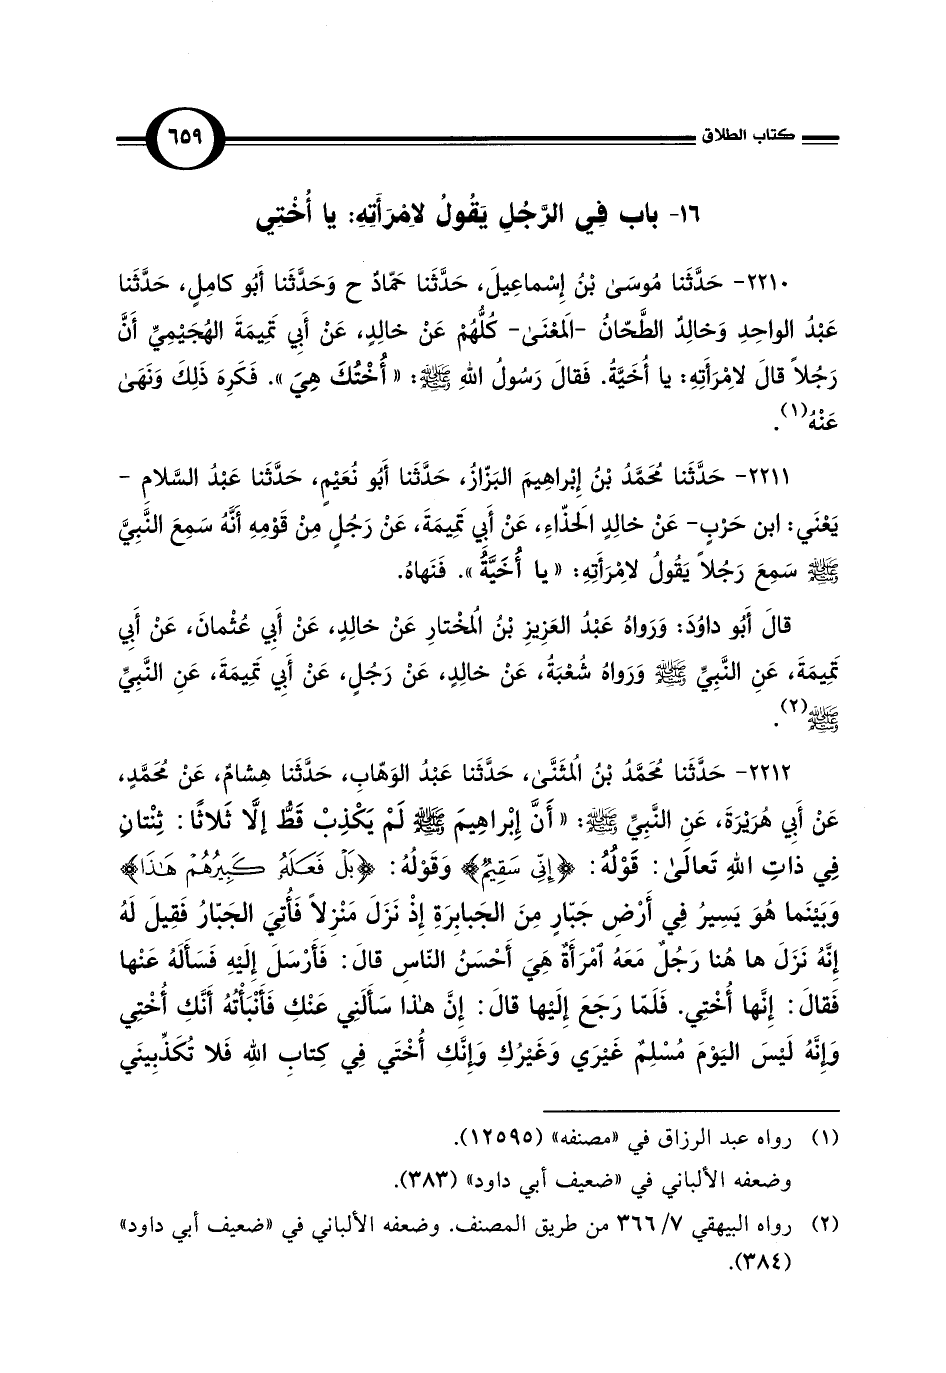 كتاب الطلاق ٦٥٩
١٦- باب فِي الرَّجُلِ يَقُولُ لاِمْرَأَتِهِ: يا أُخْتِي
٢٢١٠- حَدَّثَنا مُوسَىٰ بْنُ إِسْماعِيلَ، حَدَّثَنا حَمّادٌ ح وَحَدَّثَنا أَبُو كامِلٍ، حَدَّثَنا
عَبْدُ الواحِدِ وَخالِدٌ الطَّحّانُ -المَعْنَىٰ- كُلُّهُمْ عَنْ خالِدٍ، عَنْ أَبِي تَمِيمَةَ الهُجَيْمِيِّ أَنَّ
رَجُلاً قالَ لامْرَأَتِهِ: يا أُخَيَّةُ. فَقالَ رَسُولُ اللهِ ﷺ: « أُخْتُكَ هِيَ ». فَكَرِهَ ذَلِكَ وَنَهَىٰ
عَنْهُ(١).
٢٢١١- حَدَّثَنا مُحَمَّدُ بْنُ إِبْراهِيمَ البَزّازُ، حَدَّثَنا أَبُو نُعَيْمٍ، حَدَّثَنا عَبْدُ السَّلامِ -
يَعْنَي: ابن حَرْبٍ- عَنْ خالِدٍ الحَذّاءِ، عَنْ أَبِي تَمِيمَةَ، عَنْ رَجُلٍ مِنْ قَوْمِهِ أَنَّهُ سَمِعَ النَّبِيَّ
ﷺ سَمِعَ رَجُلاً يَقُولُ لامْرَأَتِهِ: « يا أُخَيَّةُ ». فَنَهاهُ.
قالَ أَبُو داوُدَ: وَرَواهُ عَبْدُ العَزِيزِ بْنُ المُخْتارِ عَنْ خالِدٍ، عَنْ أَبِي عُثْمانَ، عَنْ أَبِي
تَمِيمَةَ، عَنِ النَّبِيِّ ﷺ وَرَواهُ شُعْبَةُ، عَنْ خالِدٍ، عَنْ رَجُلٍ، عَنْ أَبِي تَمِيمَةَ، عَنِ النَّبِيِّ
ﷺ(٢).
٢٢١٢- حَدَّثَنا مُحَمَّدُ بْنُ المُثَنَّىٰ، حَدَّثَنا عَبْدُ الوَهّابِ، حَدَّثَنا هِشامٌ، عَنْ مُحَمَّدٍ،
عَنْ أَبِي هُرَيْرَةَ، عَنِ النَّبِيِّ ﷺ: « أَنَّ إِبْراهِيمَ ﷺ لَمْ يَكْذِبْ قَطُّ إِلَّا ثَلاثًا: ثِنْتانِ
فِي ذاتِ اللهِ تَعالَىٰ: قَوْلُهُ: ﴿إِنِّي سَقِيمٌ﴾ وَقَوْلُهُ: ﴿بَلْ فَعَلَهُ كَبِيرُهُمْ هَـٰذَا﴾
وَبَيْنَما هُوَ يَسِيرُ فِي أَرْضِ جَبّارٍ مِنَ الجَبابِرَةِ إِذْ نَزَلَ مَنْزِلاً فَأُتِيَ الجَبّارُ فَقِيلَ لَهُ
إِنَّهُ نَزَلَ ها هُنا رَجُلٌ مَعَهُ ٱمْرَأَةٌ هِيَ أَحْسَنُ النّاسِ قالَ: فَأَرْسَلَ إِلَيْهِ فَسَأَلَهُ عَنْها
فَقالَ: إِنَّها أُخْتِي. فَلَمّا رَجَعَ إِلَيْها قالَ: إِنَّ هٰذا سَأَلَنِي عَنْكِ فَأَنْبَأْتُهُ أَنَّكِ أُخْتِي
وَإِنَّهُ لَيْسَ اليَوْمَ مُسْلِمٌ غَيْرِي وَغَيْرُكِ وَإِنَّكِ أُخْتِي فِي كِتابِ اللهِ فَلا تُكَذِّبِينَي
(١) رواه عبد الرزاق في «مصنفه» (١٢٥٩٥).
وضعفه الألباني في «ضعيف أبي داود» (٣٨٣).
(٢) رواه البيهقي ٧/ ٣٦٦ من طريق المصنف. وضعفه الألباني في «ضعيف أبي داود»
(٣٨٤).